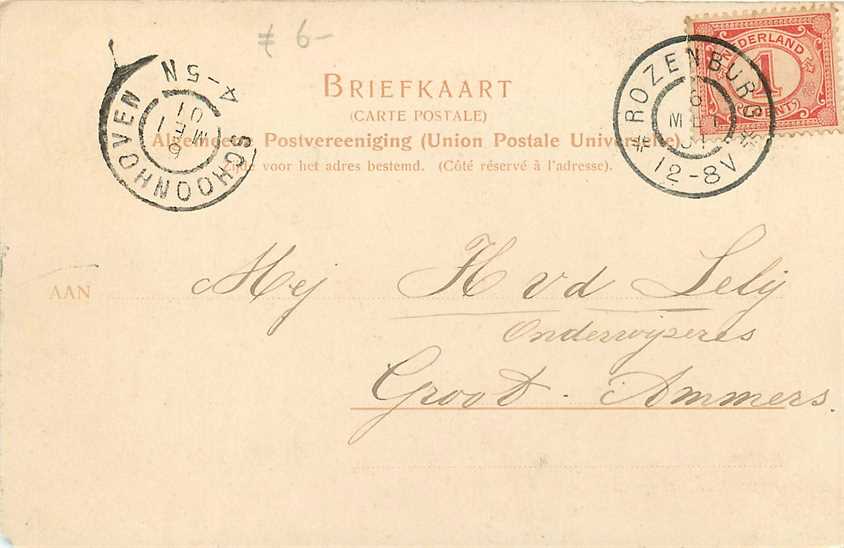 # 6-
NEDERLAND
1
CENT
ROZENBURG
6
MEI
01
12-8V
SCHOONHOVEN
6
MEI
01
4-5N
BRIEFKAART
(CARTE POSTALE)
Algemeene Postvereeniging (Union Postale Universelle)
Zijde voor het adres bestemd. (Côté réservé à l'adresse).
AAN Mej H vd Lely
Onderwijzeres
Groot-Ammers.